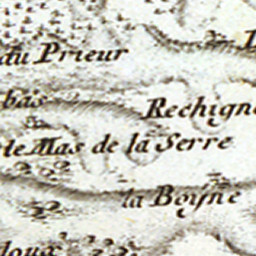 du Prieur
bas
Rechign
le Mas de la Serre
la Boyne